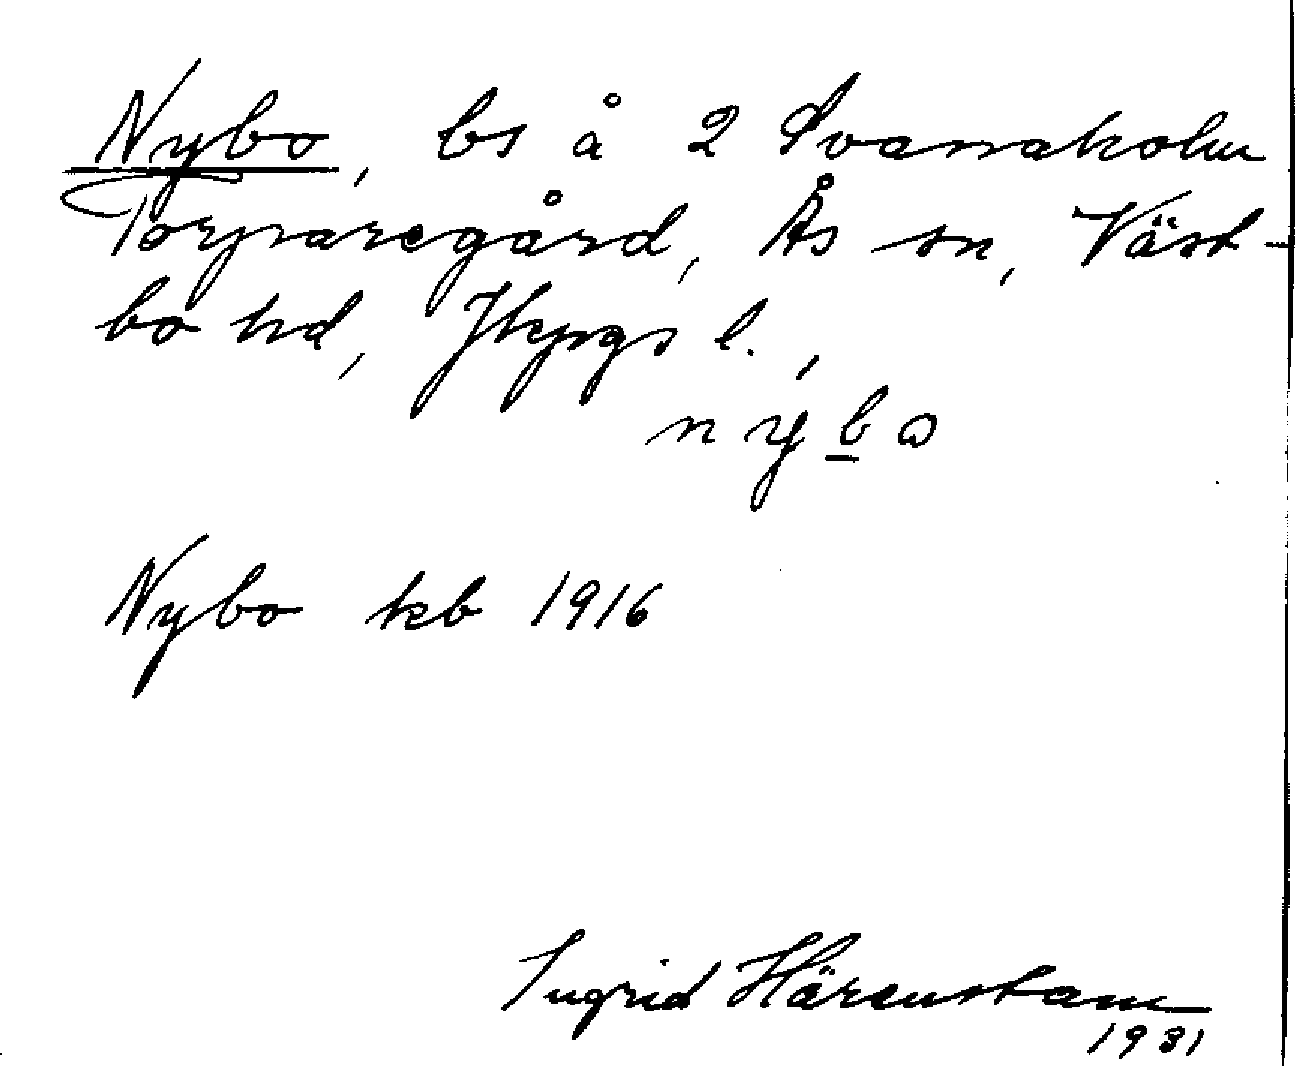 Nybo, bs å 2 Svanaholm
Torparegård, Ås sn, Väst-
bo hd, Jkpgs l.,
nybo
Nybo kb 1916
Ingrid Härenstam
1931